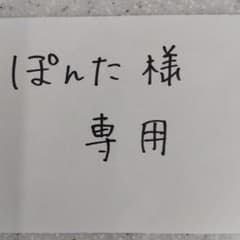 ぽんた様
専用